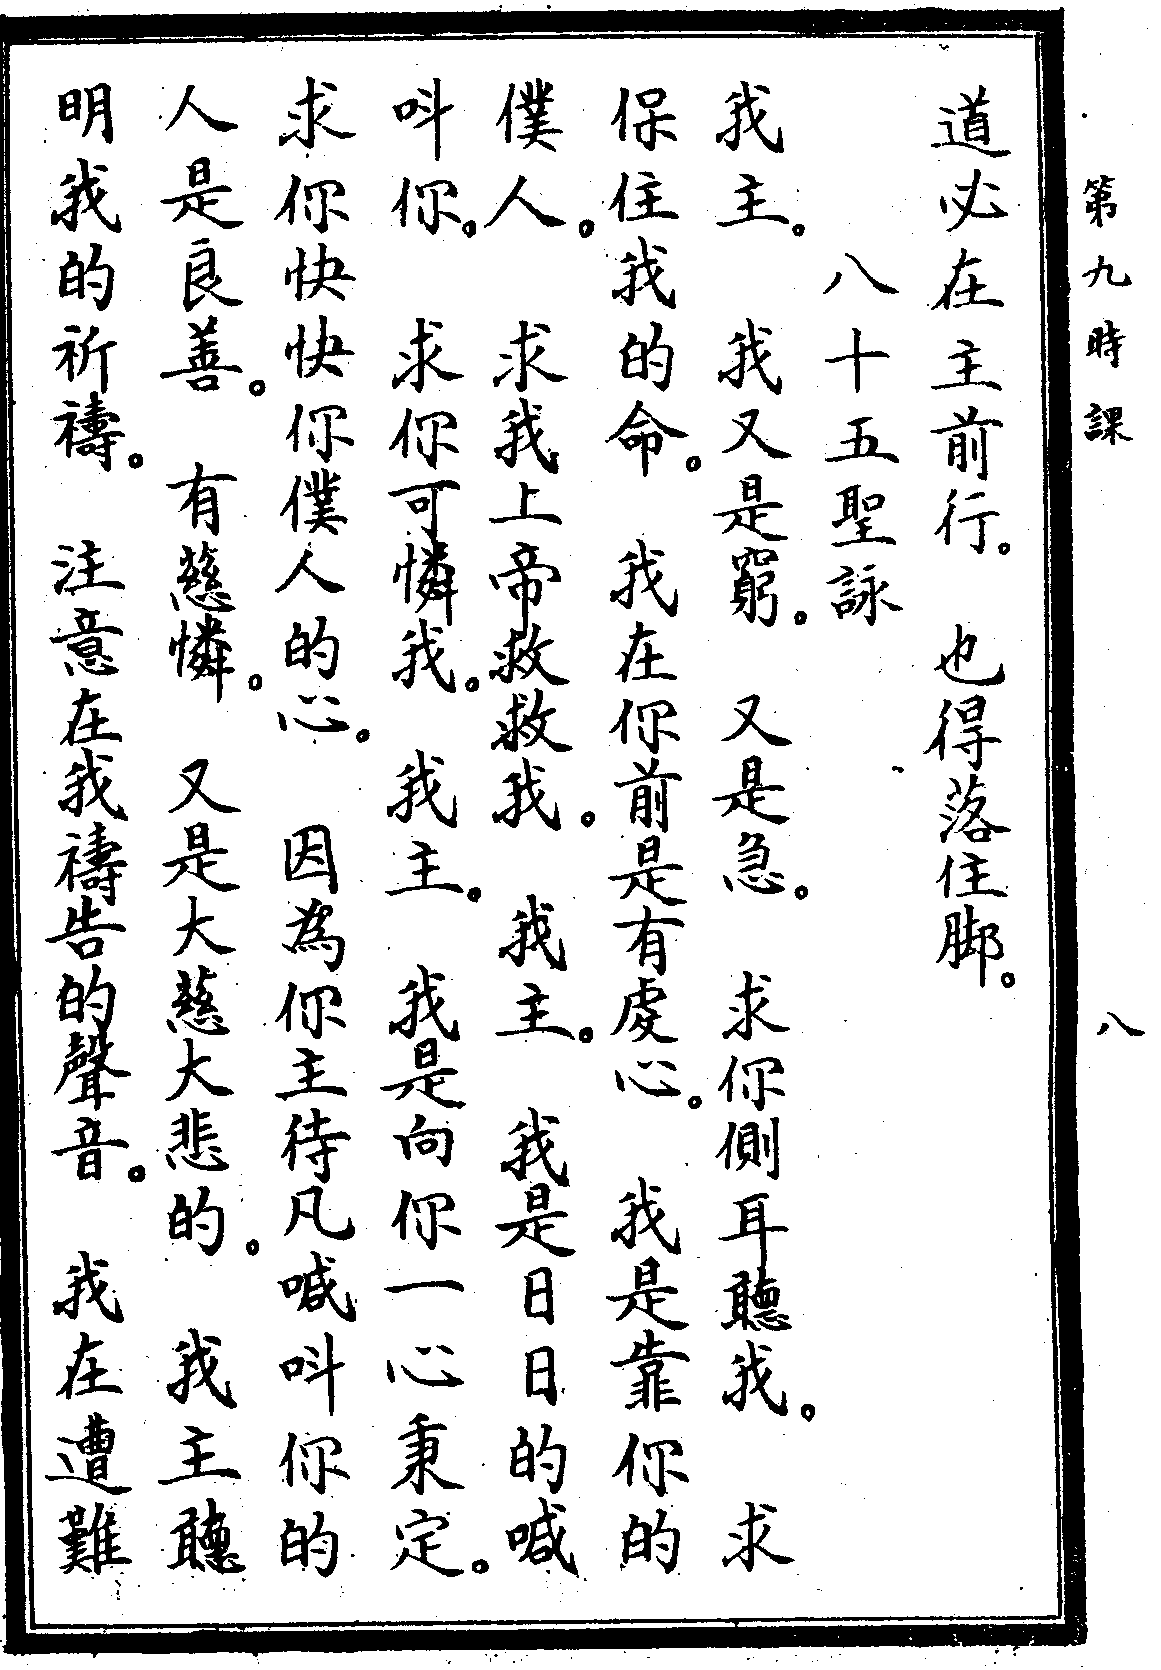 第九時課　八
道必在主前行。　也得落住脚。
八十五聖詠
我主。　我又是窮。　又是急。　求你側耳聽我。　求
保住我的命。　我在你前是有虔心。　我是靠你的
僕人。　求我上帝救救我。　我主。　我是日日的喊
叫你。　求你可憐我。　我主。　我是向你一心秉定。
求你快快你僕人的心。　因為你主待凡喊叫你的
人是良善。　有慈憐。　又是大慈大悲的。　我主聽
明我的祈禱。　注意在我禱告的聲音。　我在遭難